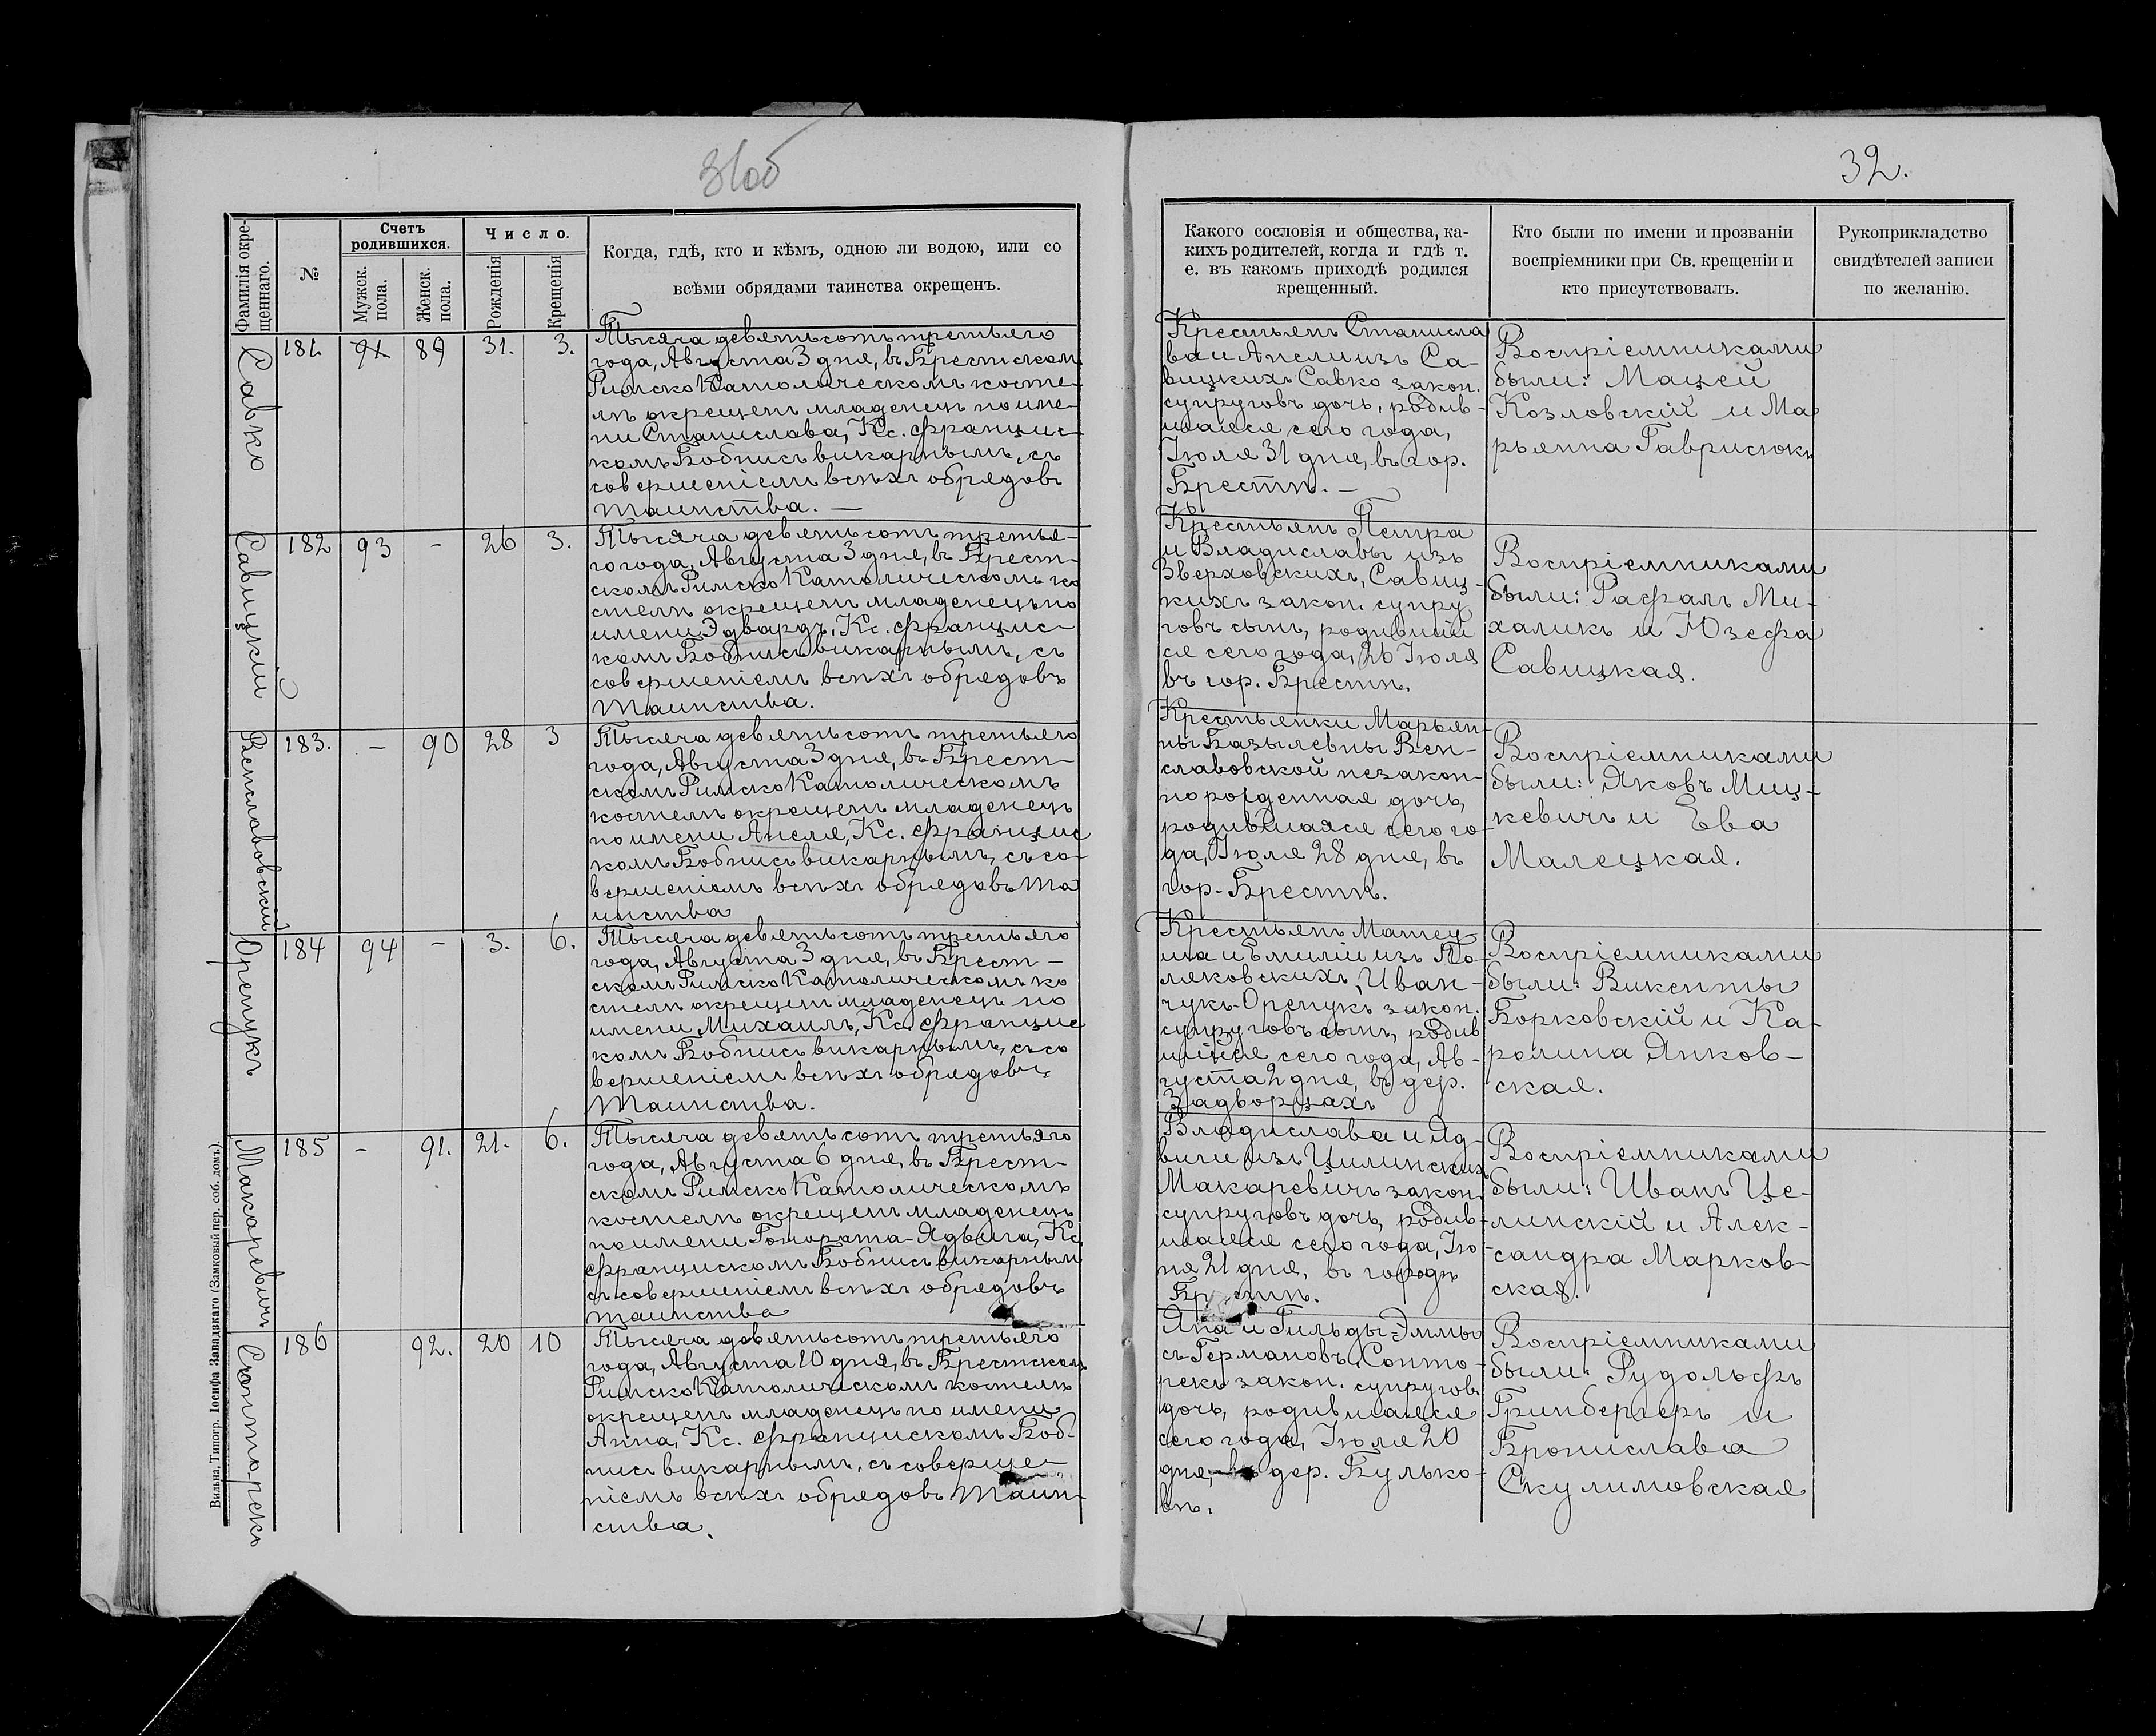 31об
32.
Фамилія окре-
щеннаго.
№
Счетъ
родившихся.
Мужск.
пола.
Женск.
пола.
Число.
Рожденія
Крещенія
Когда, гдѣ, кто и кѣмъ, одною ли водою, или со
всѣми обрядами таинства окрещенъ.
Какого сословія и общества, ка-
кихъ родителей, когда и гдѣ т.
е. въ какомъ приходѣ родился
крещенный.
Кто были по имени и прозваніи
воспріемники при Св. крещеніи и
кто присутствовалъ.
Рукоприкладство
свидѣтелей записи
по желанію.
Савко
181 89 31. 3.
Тысяча девятьсотъ третьяго
года, Августа 3 дня, въ Брестском
Римско Католическомъ косте-
лѣ окрещенъ младенецъ по име-
ни Станислава, Кс. Францис-
комъ Бобнисъ викарнымъ, съ
совершеніемъ всѣхъ обрядовъ
таинства. —
Крестьянъ Станисла
ва и Анели изъ Са-
вицкихъ Савко закон.
супруговъ дочь, родив-
шаяся сего года,
Іюля 31 дня, въ гор.
Брестѣ. —
Воспріемниками
были: Мацей
Козловскій и Ма
рьянна Гаврисюкъ
Савицкій
182 93 - 26 3.
Тысяча девятьсотъ третья-
го года, Августа 3 дня, въ Брест-
скомъ Римско Католическомъ ко
стелѣ окрещенъ младенецъ по
имени Эдвардъ, Кс. Францис-
комъ Бобнисъ викарнымъ, съ
совершеніемъ всѣхъ обрядовъ
таинства.
Крестьянъ Петра
и Владиславы изъ
Зверховскихъ, Савиц-
кихъ закон. супру
говъ сынъ, родивший
ся сего года, 26 Іюля
въ гор. Брестѣ.
Воспріемниками
были: Рафалъ Ми-
халикъ и Юзефа
Савицкая.
Венславовский
183. - 90 28 3
Тысяча девятьсотъ третьяго
года, Августа 3 дня, въ Брест-
скомъ Римско Католическомъ
костелѣ окрещенъ младенецъ
по имени Анеля, Кс. Францис
комъ Бобнисъ викарнымъ, съ со-
вершеніемъ всѣхъ обрядовъ та
инства
Крестьянки Марьян-
ны Базылевны Вен-
славовской незакон-
норожденная дочь,
родившаяся сего го-
да, Іюля 28 дня, въ
гор. Брестѣ.
Воспріемниками
были: Яковъ Миц-
кевичъ и Ева
Малецкая.
Оренукъ
184 94 - 3. 6.
Тысяча девятьсотъ третьяго
года, Августа 3 дня, въ Брест-
скомъ Римско Католическомъ ко
стелѣ окрещенъ младенецъ по
имени Михаилъ, Кс. Францис
комъ Бобнисъ викарнымъ, съ со
вершеніемъ всѣхъ обрядовъ
Таинства.
Крестьянъ Матеу-
ша и Емиліи изъ По-
ляковскихъ, Иван-
чукъ-Оренукъ закон.
супруговъ сынъ, родив
шійся сего года, Ав-
густа 2 дня, въ дер.
Задворцахъ
Воспріемниками
были: Викенты
Борковскій и Ка-
ролина Янков-
ская.
Макаревичъ
185 - 91. 21. 6.
Тысяча девятьсотъ третьяго
года, Августа 6 дня, въ Брест-
скомъ Римско Католическомъ
костелѣ окрещенъ младенецъ
по имени Гонората-Ядвига, Кс.
Францискомъ Бобнисъ викарным
съ совершеніемъ всѣхъ обрядовъ
таинства
Владислава и Яд-
виги изъ Цилинских
Макаревичъ закон.
супруговъ дочь, родив-
шаяся сего года, Ію
ня 21 дня, въ городѣ
Воспріемниками
были: Иванъ Це-
линскій и Алек-
сандра Марков-
ская.
Сонторекъ
186 92. 20 10
Тысяча девятьсотъ третьяго
года, Августа 10 дня, въ Брестском
Римско Католическомъ костелѣ
окрещенъ младенецъ по имени
Анна, Кс. Францискомъ Боб-
нисъ викарнымъ, съ соверше-
ніемъ всѣхъ обрядовъ Таин-
ства.
Яна и Гильды-Эммы
съ Германовъ, Сонто-
рекъ закон. супруговъ
дочь, родившаяся
сего года, Іюля 20
дня, въ дер. Булько-
вѣ.
Воспріемниками
были: Рудольфъ
Гринбергеръ и
Брониславa
Скулимовская
Вильна, Типогр. Іосифа Завадзкаго (Замковый пер. соб. домъ).